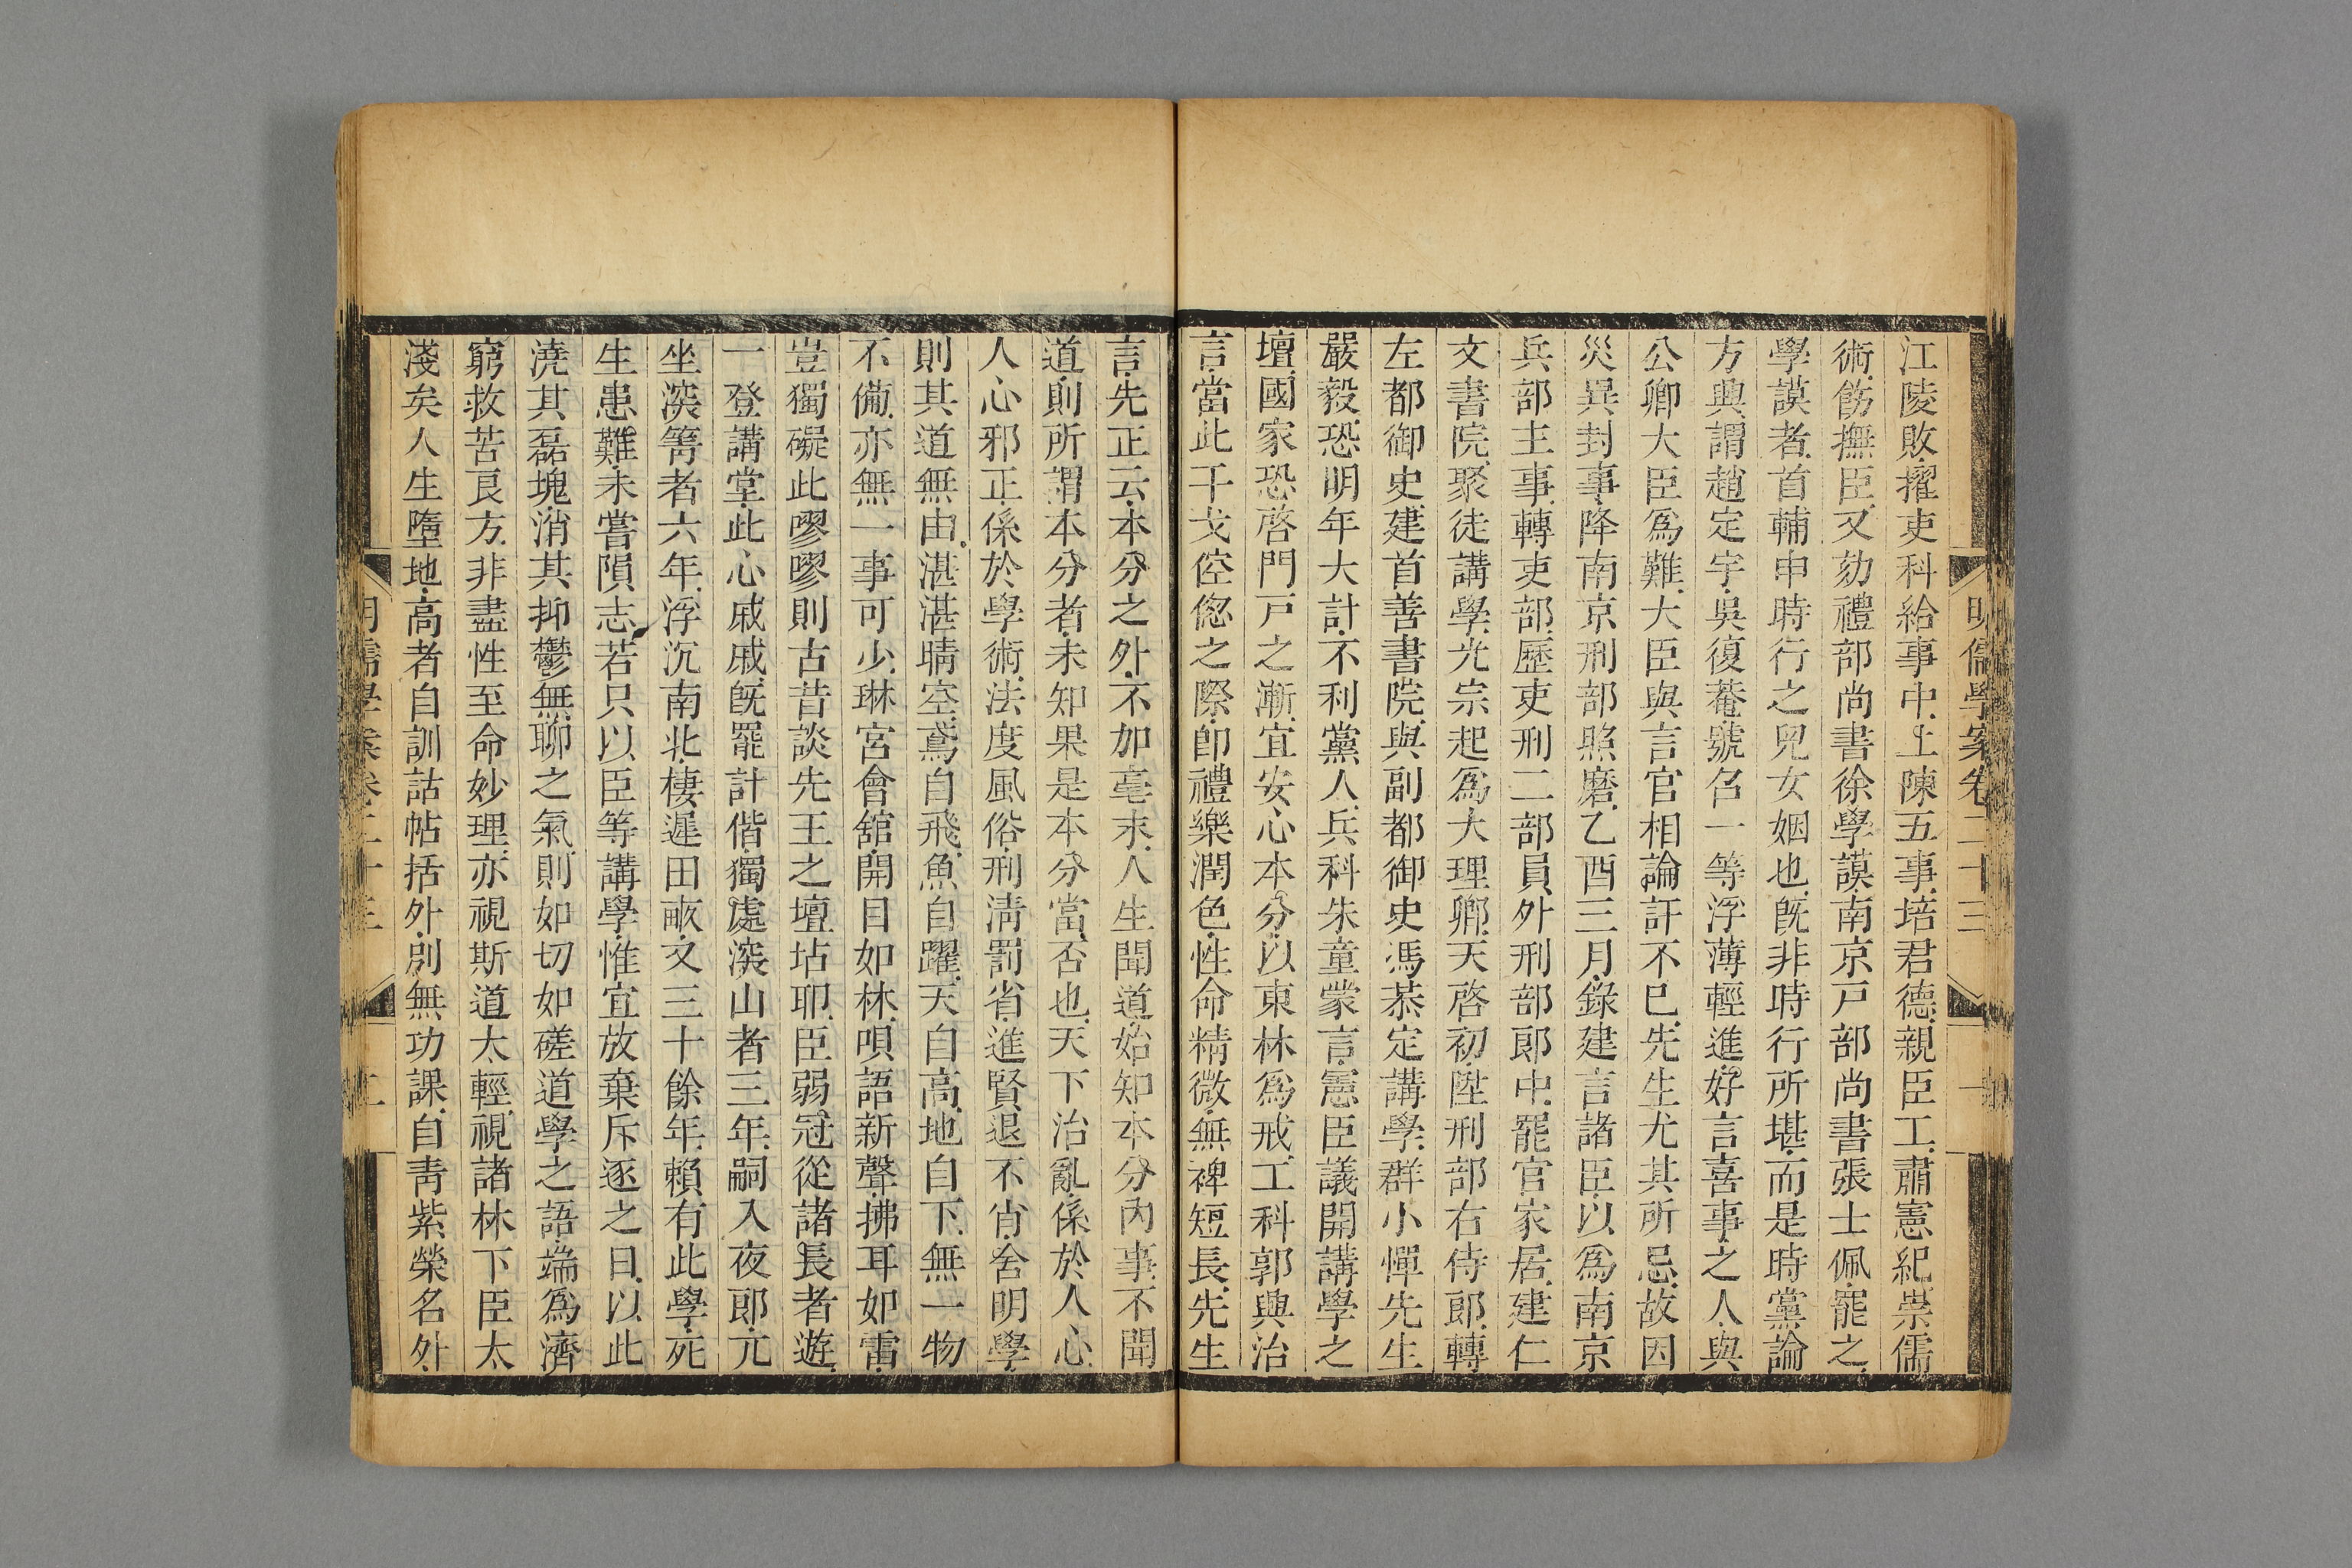 江陵敗擢吏科給事中上陳五事培君德親臣工肅憲紀崇儒
術飭撫臣又劾禮部尚書徐學謨南京戸部尚書張士佩罷之
學謨者首輔申時行之兒女姻也旣非時行所堪而是時黨論
方興謂趙定宇吳復菴號召一等浮薄輕進好言喜事之人與
公卿大臣爲難大臣與言官相論訐不已先生尤其所忌故因
災異封事降南京刑部照磨乙酉三月錄建言諸臣以爲南京
兵部主事轉吏部歷吏刑二部員外刑部郎中罷官家居建仁
文書院聚徒講學光宗起爲大理卿天啓初陞刑部右侍郎轉
左都御史建首善書院與副都御史馮恭定講學群小憚先生
嚴毅恐明年大計不利黨人兵科朱童蒙言憲臣議開講學之
壇國家恐啓門戸之漸宜安心本分以東林爲戒工科郭興治
言當此干戈倥偬之際卽禮樂潤色性命精微無裨短長先生
言先正云本分之外不加毫末人生聞道始知本分內事不聞
道則所謂本分者未知果是本分當否也天下治亂係於人心
人心邪正係於學術法度風俗刑淸罰省進賢退不肖舍明學
則其道無由湛湛晴空鳶自飛魚自躍天自高地自下無一物
不備亦無一事可少琳宮會舘開目如林唄語新聲拂耳如雷
豈獨礙此嘐嘐則古昔談先王之壇坫耶臣弱冠從諸長者遊
一登講堂此心戚戚旣罷計偕獨處深山者三年嗣入夜郎兀
坐深箐者六年浮沉南北棲遲田畝又三十餘年賴有此學死
生患難未嘗隕志若只以臣等講學惟宜放棄斥逐之日以此
澆其磊塊消其抑鬱無聊之氣則如切如磋道學之語端爲濟
窮救苦良方非盡性至命妙理亦視斯道太輕視諸林下臣太
淺矣人生墮地高者自訓詁帖括外別無功課自靑紫榮名外
明儒學案卷二十三
一
明儒學案卷二十三
二